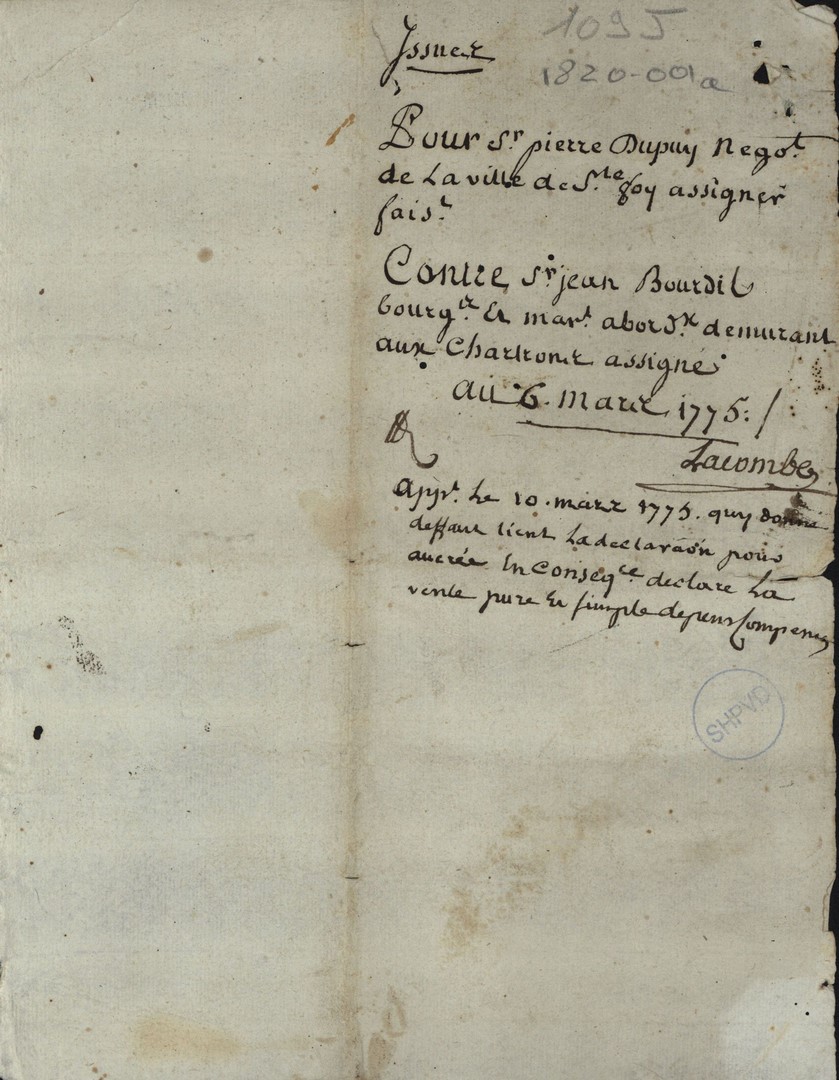 1095
1820-001a
Issuer
Pour Sr. pierre Dupuy Negot.
de La ville de Ste. foy assigner
faist.
Contre Sr. jean Bourdil
bourg. Et mart. a bordx. demurant
aux Chartrons assigné
au 6. mars 1775. /
Lacombe
appt. Le 10. mars 1775. quy donne
deffaut tient La declara͞on pour
aucrée En Conseqce. declare La
vente pure Et simple depens Compensés
SHPVD